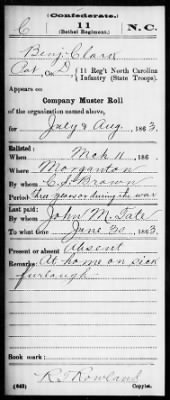 (Confederate.)
C 11 N. C.
(Bethel Regiment.)
Benj. Clark
Pvt, Co. D, 11 Reg't North Carolina Infantry (State Troops).
Appears on
Company Muster Roll
of the organization named above,
for July & Aug, 1863.
Enlisted:
When Mch 11, 186
Where Morganton
By whom C. S. Brown
Period three years or during the war
Last paid:
By whom John M. Tate
To what time June 30, 1863.
Present or absent Absent
Remarks: At home on sick
furlough
Book mark:
(642) R T Rowland
Copyist.